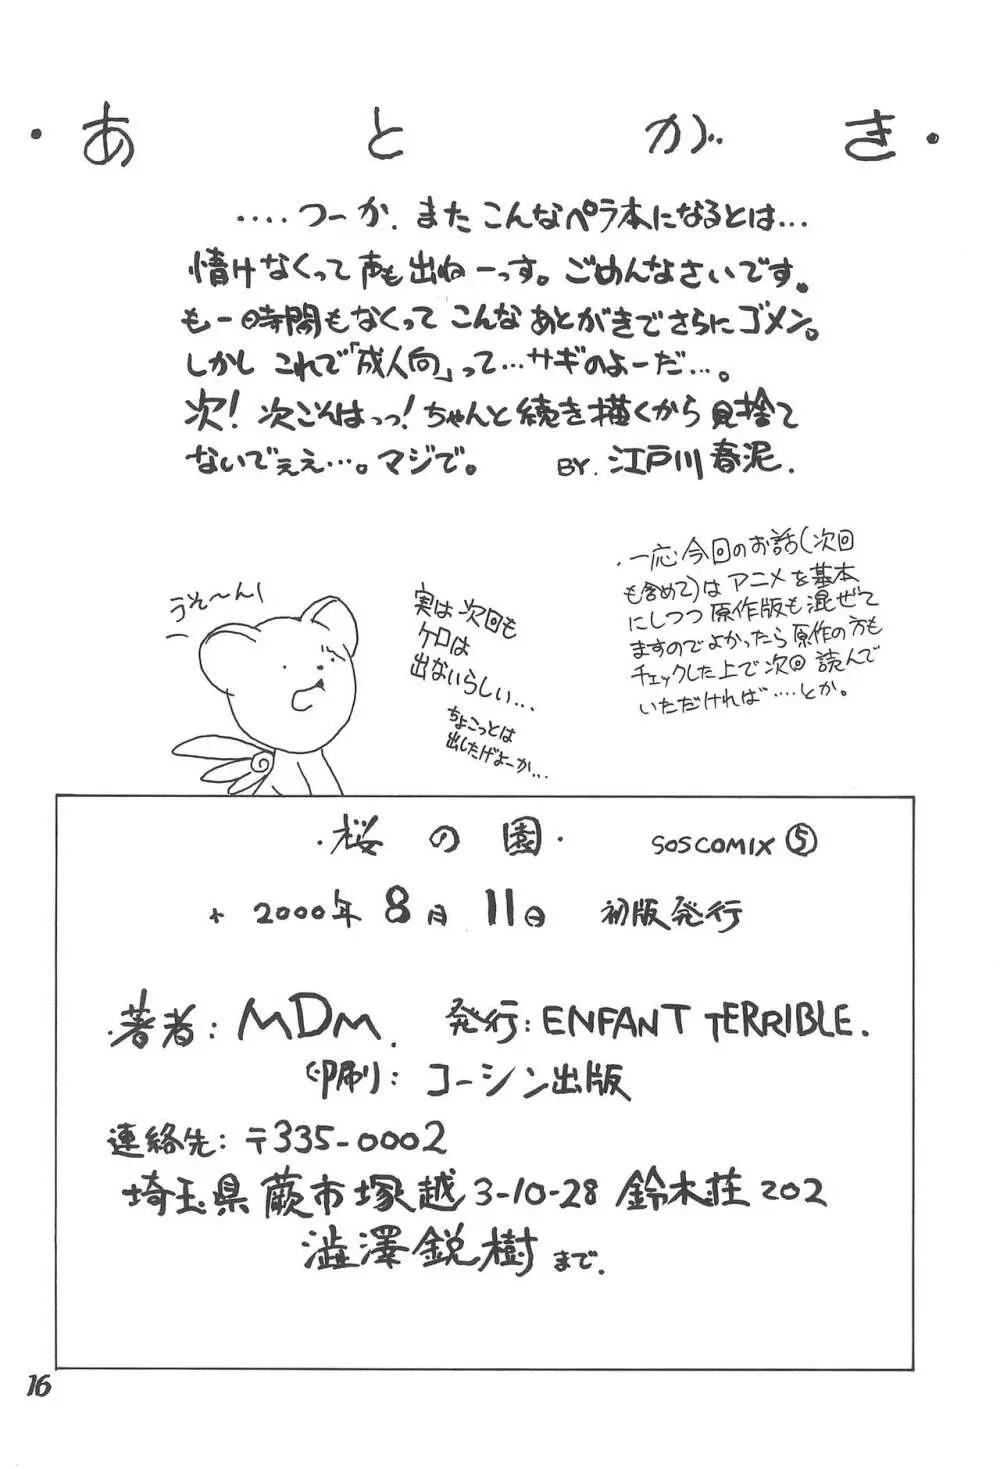 ・あとがき・
....つーか、またこんなペラ本になるとは...
情けなくって声も出ねーっす。ごめんなさいです。
も一時間もなくってこんなあとがきでさらにゴメン。
しかしこれで「成人向」って…サギのよーだ…。
次！次こそはっっ！ちゃんと続き描くから見捨て
ないでぇぇ…。マジで。 BY.江戸川春泥.
・一応今回のお話(次回
も含めて)はアニメを基本
にしつつ原作版も混ぜて
ますのでよかったら原作の方も
チェックした上で次回読んで
いただければ……とか。
うそ〜ん！
実は次回も
ケロは
出ないらしい...
ちょこっとは
出したげよーか...
・桜の園・ SOSCOMIX⑤
+ 2000年8月11日 初版発行
・著者：MDM. 発行：ENFANT TERRIBLE.
印刷：コーシン出版
連絡先：〒335-0002
埼玉県蕨市塚越3-10-28 鈴木荘202
澁澤鋭樹まで.
16